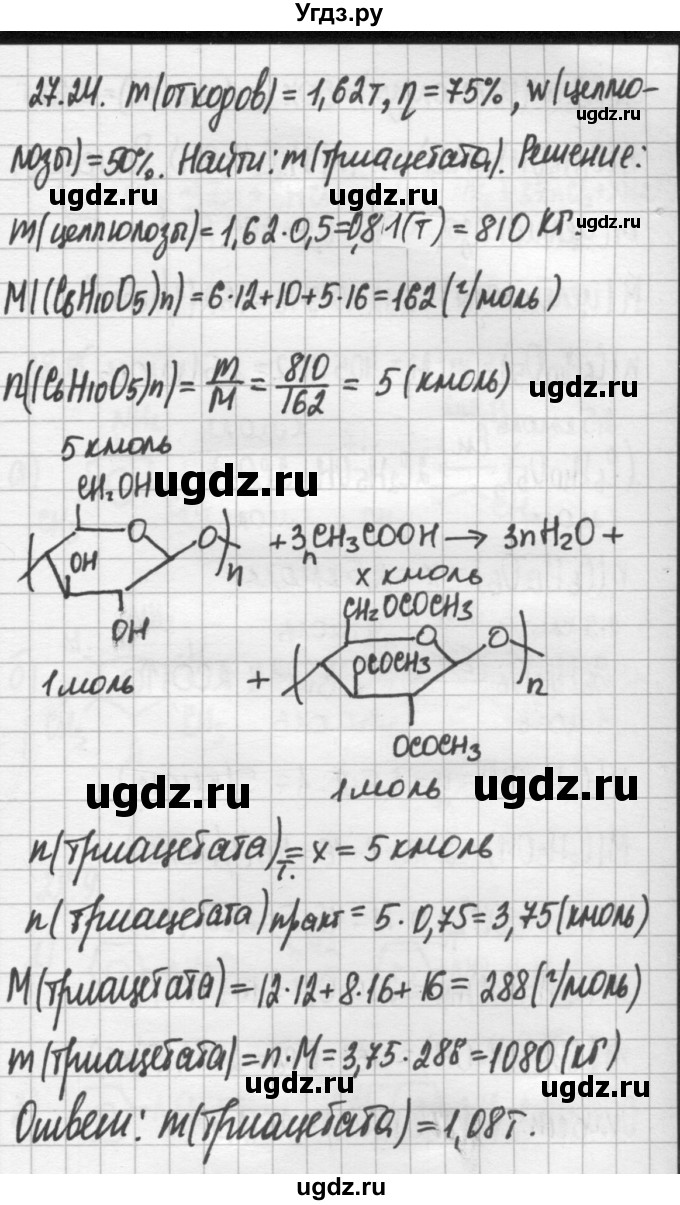 Угдз.ру
27.24. m(отходов) = 1,62т, η = 75%, w(целлю-
ugdz.ru
лозы) = 50%. Найти: m(триацетата). Решение:
ugdz.ru ugdz.ru
m(целлюлозы) = 1,62·0,5 = 0,81(т) = 810 кг.
ugdz.ru
M((C6H10O5)n) = 6·12+10+5·16 = 162 (г/моль)
n((C6H10O5)n) = m/M = 810/162 = 5 (кмоль)
ugdz.ru
5 кмоль
CH2OH
ugdz.ru
O O
OH n + 3nCH3COOH → 3nH2O +
OH
x кмоль
CH2OCOCH3
1 моль
+ O O
OCOCH3 n
OCOCH3
1 моль
ugdz.ru ugdz.ru
n(триацетата)т. = x = 5 кмоль
n(триацетата)практ = 5·0,75 = 3,75 (кмоль)
M(триацетата) = 12·12+8·16+16 = 288 (г/моль)
m(триацетата) = n·M = 3,75·288 = 1080 (кг)
ugdz.ru ugdz.ru
Ответ: m(триацетата) = 1,08т.
ugdz.ru